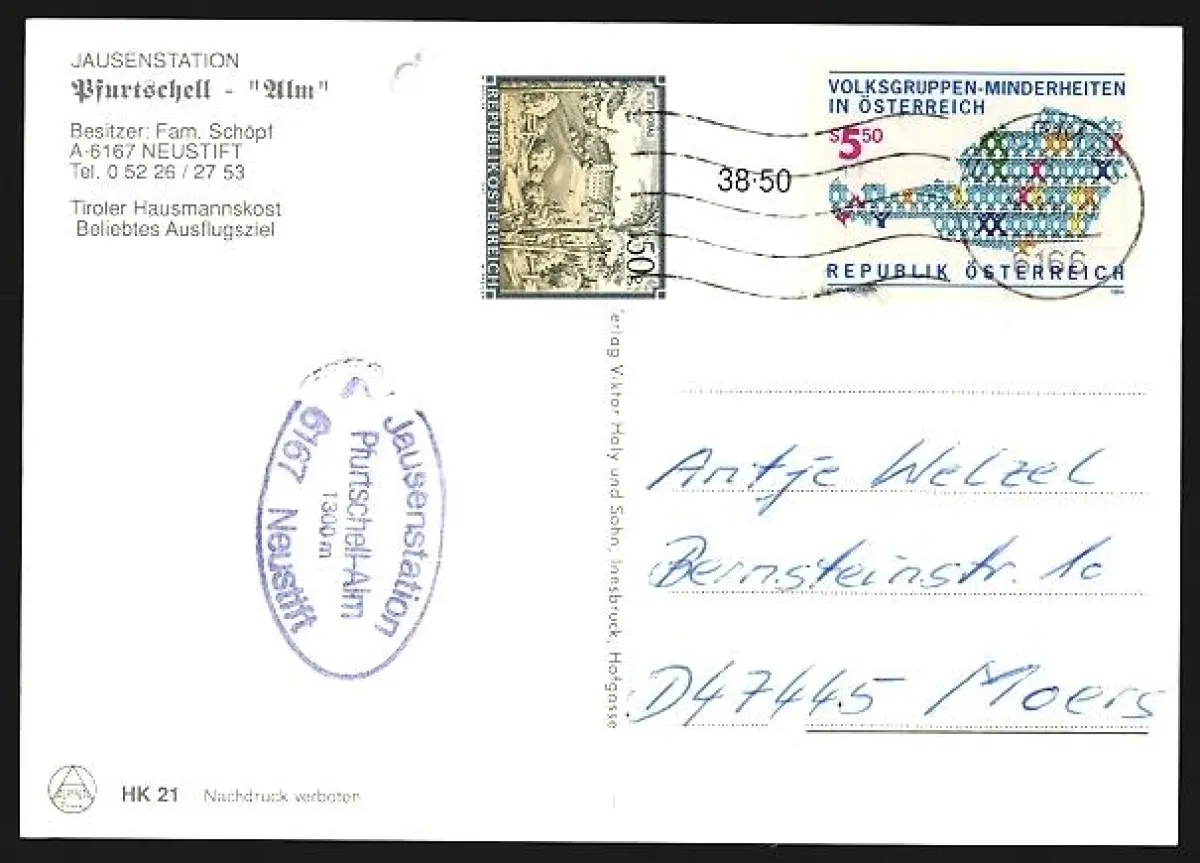 JAUSENSTATION
Pfurtschell - "Alm"
Besitzer: Fam. Schöpf
A-6167 NEUSTIFT
Tel. 0 52 26 / 27 53
Tiroler Hausmannskost
Beliebtes Ausflugsziel
REPUBLIK ÖSTERREICH
50g
38·50
VOLKSGRUPPEN-MINDERHEITEN
IN ÖSTERREICH
S 5 50
REPUBLIK ÖSTERREICH
6166
Jausenstation
Pfurtschell-Alm
1300 m
6167 Neustift
erlag Viktor Haly und Sohn, Innsbruck, Hofgasse
Antje Welzel
Bernsteinstr. 10
D47445 Moers
HK 21 Nachdruck verboten